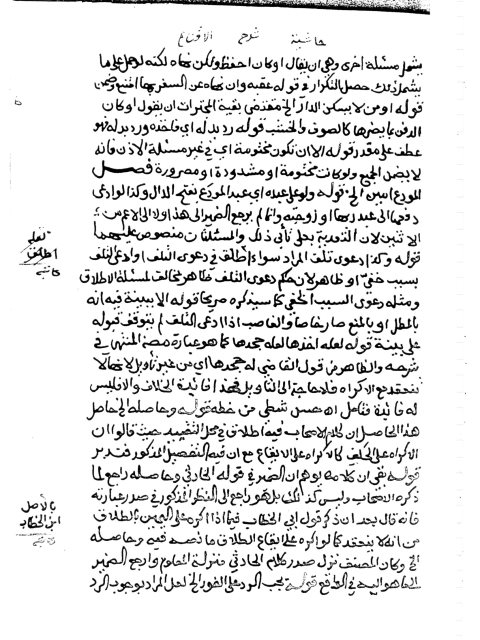 حاشية شرح الاقناع
يشمل مسئلة اخرى وهي ان يقال او كان احفظ ولكن نهاه لكنه لو حمل على ما
يشمل ذلك حصل التكرار في قوله عقبه وان نهاه عن السفر بها امتنع وضمن
قوله او من لا يسكن الدار الخ مقتضى بقية المحترزات ان يقول او كان
الدفن يضرها كالصوف والخشب قوله رد بدله اي فاخذه ورد بدله فهو
عطف على مقدر قوله الا ان تكون مختومة اي في غير مسئلة الاذن فانه
لا يضمن الجميع ولو كانت مختومة او مشدودة او مصرورة فصل
المودع امين الخ قوله ولو على عبده اي عبد المودع بفتح الدال وكذا لو ادعى
دفعها الى عبد ربها او زوجته وانما لم يرجع الضمير الى هذا اولا الى الاعم من
الاثنين لان التعدية بعلى تأبى ذلك والمسئلتان منصوص عليهما
قوله وكذا دعوى تلف المراد سواء اطلق في دعوى التلف او ادعى التلف
بسبب خفي او ظاهر لان حكم دعوى التلف ظاهر مخالف لمسئلة الاطلاق
ومثله دعوى السبب الخفي كما سيذكره صريحا قوله الا ببينة فيه انه
بالمطل او بالمنع صار غاصبا والغاصب اذا ادعى التلف لم يتوقف قبوله
على بينة قوله لعله اخذها لعله جحدها كما هو عبارة المنتهى في
شرحه والظاهر من قول القاضي له جحدها اي من غير تأويل لانها لا
تنعقد مع الاكراه فلا حاجة الى التأويل فيجحد فائدة الخلاف والا فليس
له فائدة فتامل اه حسن شطي من خطه قوله وحاصله الخ حاصل
هذا الحاصل ان كلام الاصحاب فيه اطلاق في محل التقييد حيث قالوا ان
الاكراه على الحلف كالاكراه على الايقاع مع ان فيه التفصيل المذكور فتدبر
قوله بقي ان كلامه يوهم ان الضمير في قوله الحارثي وحاصله راجع لما
ذكره الاصحاب وليس كذلك بل هو راجع الى النظر المذكور في صدر عبارته
فانه قال بعد ان ذكر قول ابي الخطاب فيما اذا اكره على اليمين بالطلاق
من انه لا ينعقد كما لو اكره على ايقاع الطلاق ما نصه فيه وحاصله
الخ وكان المصنف نزل صدر كلام الحارثي منزلة المعلوم وارجع الضمير
الى ما هو اليه في الواقع قوله يجب الرد على الفور الخ لعل المراد بوجوب الرد
لعله
اطلاق
كاتبه
بالاصل
ابن الخطاب